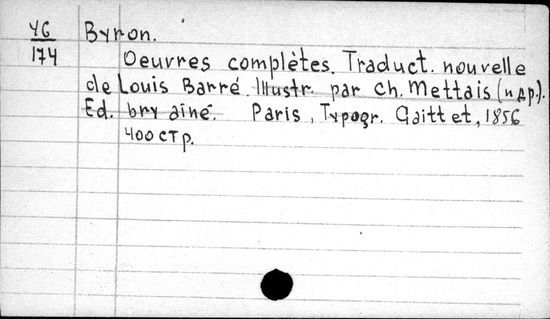 46 Byron.
174 Oeuvres complètes. Traduct. nouvelle
de Louis Barré. Illustr. par Ch. Mettais (и др.).
Ed. bry aîné. Paris, Typogr. Gaittet, 1856
400 стр.